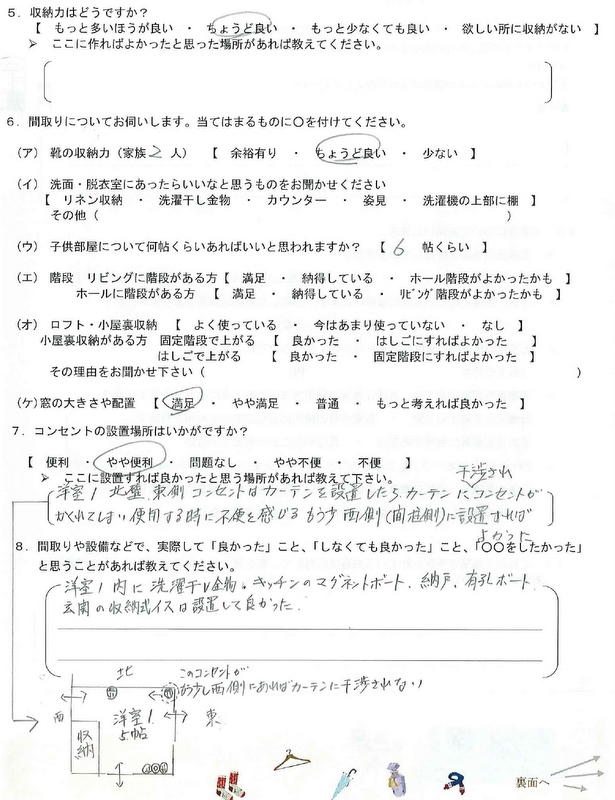 5．収納力はどうですか？
【 もっと多いほうが良い ・ ちょうど良い ・ もっと少なくても良い ・ 欲しい所に収納がない 】
➢ ここに作ればよかったと思った場所があれば教えてください。
6．間取りについてお伺いします。当てはまるものに○を付けてください。
(ア) 靴の収納力（家族 2 人） 【 余裕有り ・ ちょうど良い ・ 少ない 】
(イ) 洗面・脱衣室にあったらいいなと思うものをお聞かせください
【 リネン収納 ・ 洗濯干し金物 ・ カウンター ・ 姿見 ・ 洗濯機の上部に棚 】
その他（ ）
(ウ) 子供部屋について何帖くらいあればいいと思われますか？ 【 6 帖くらい 】
(エ) 階段 リビングに階段がある方【 満足 ・ 納得している ・ ホール階段がよかったかも 】
ホールに階段がある方 【 満足 ・ 納得している ・ ﾘﾋﾞﾝｸﾞ階段がよかったかも 】
(オ) ロフト・小屋裏収納 【 よく使っている ・ 今はあまり使っていない ・ なし 】
小屋裏収納がある方 固定階段で上がる 【 良かった ・ はしごにすればよかった 】
はしごで上がる 【 良かった ・ 固定階段にすればよかった 】
その理由をお聞かせ下さい（ ）
(ケ)窓の大きさや配置 【 満足 ・ やや満足 ・ 普通 ・ もっと考えれば良かった 】
7．コンセントの設置場所はいかがですか？
【 便利 ・ やや便利 ・ 問題なし ・ やや不便 ・ 不便 】
➢ ここに設置すれば良かったと思う場所があれば教えて下さい。
干渉され
洋室1 北壁、東側コンセントはカーテンを設置したら、カーテンにコンセントが
かくれてしまい使用する時に不便を感じる もう少し西側(間柱側)に設置すれば
よかった
8．間取りや設備などで、実際して「良かった」こと、「しなくても良かった」こと、「○○をしたかった」
と思うことがあれば教えてください。
洋室1内に洗濯干し金物。キッチンのマグネットボード、納戸、有孔ボード
玄関の収納式イスは設置して良かった。
北
このコンセントが
もう少し西側にあればカーテンに干渉されない
西
洋室1
5帖
東
収納
裏面へ